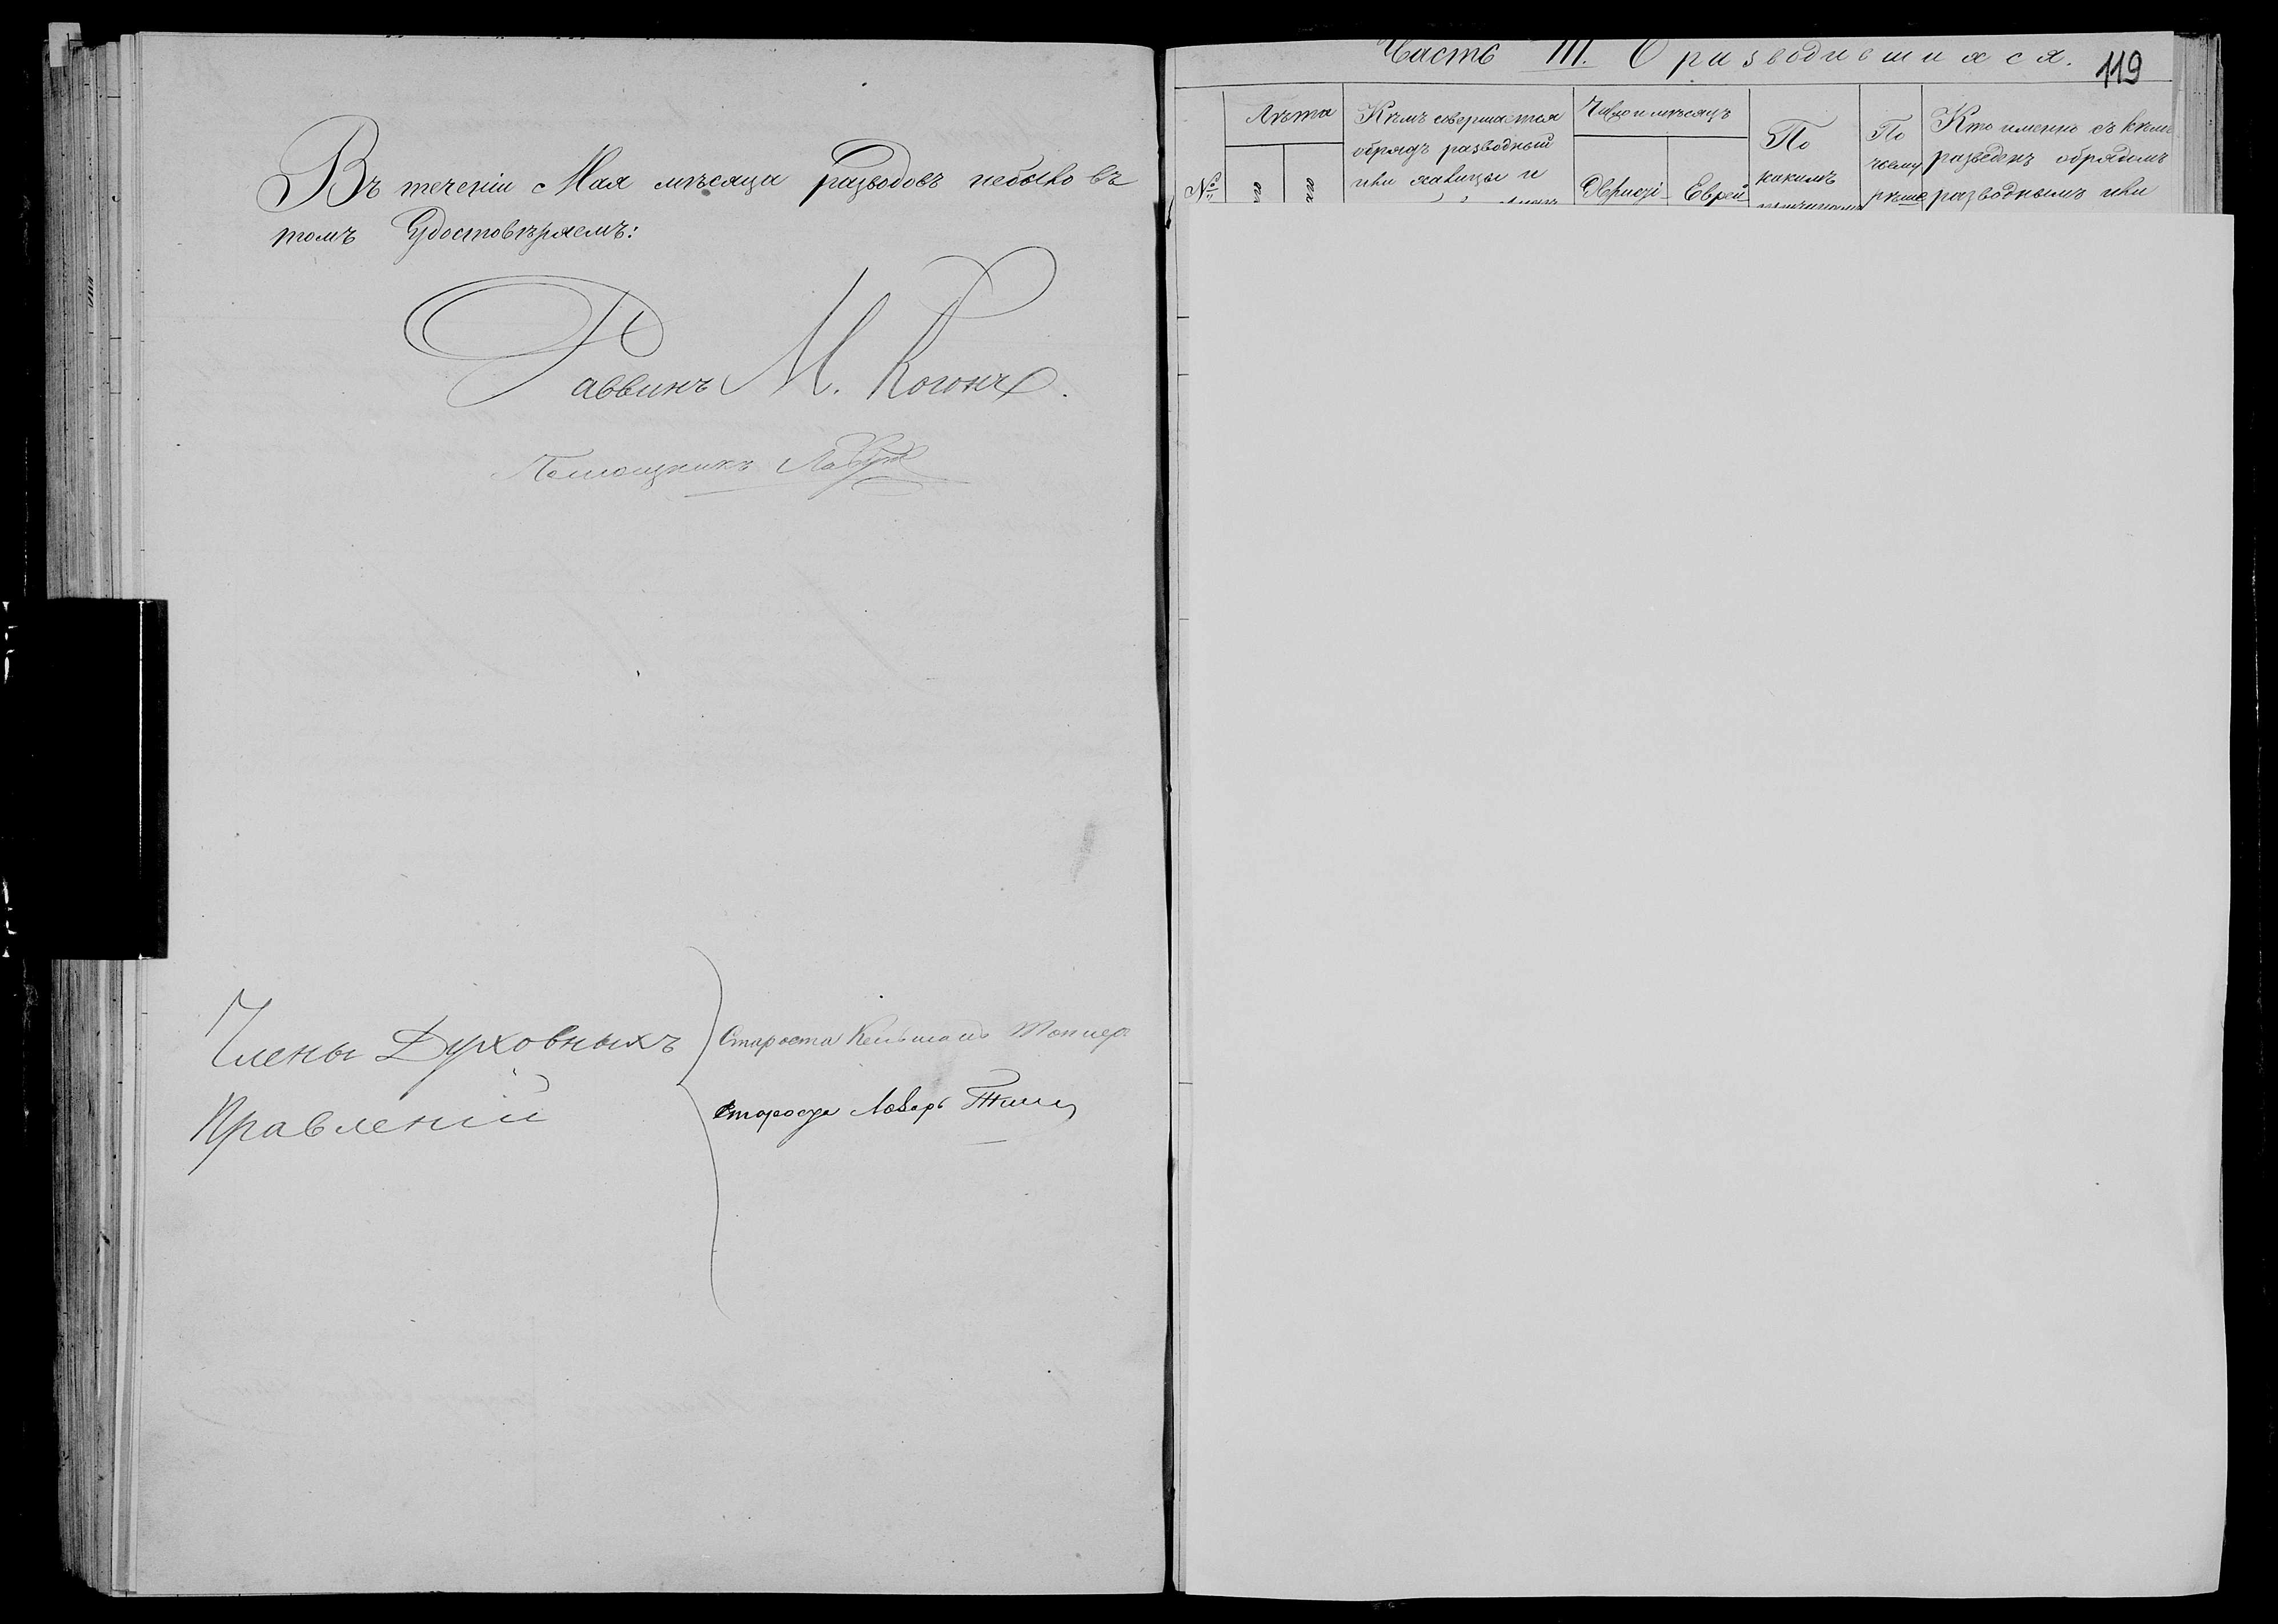 Въ теченіи Мая мѣсяца разводовъ небыло въ
томъ Удостовѣряемъ:
Раввинъ М. Когонъ.
Помощникъ
Члены Духовныхъ
Правленій
Староста
Староста
Часть III. О разводившихся.
119
№
Лѣта
Кѣмъ совершается
обрядъ разводный
или халицы и
Число и мѣсяцъ
Еврей-
По
какимъ
По
чьему
рѣше
Кто именно съ кѣмъ
разведенъ обрядомъ
разводнымъ или